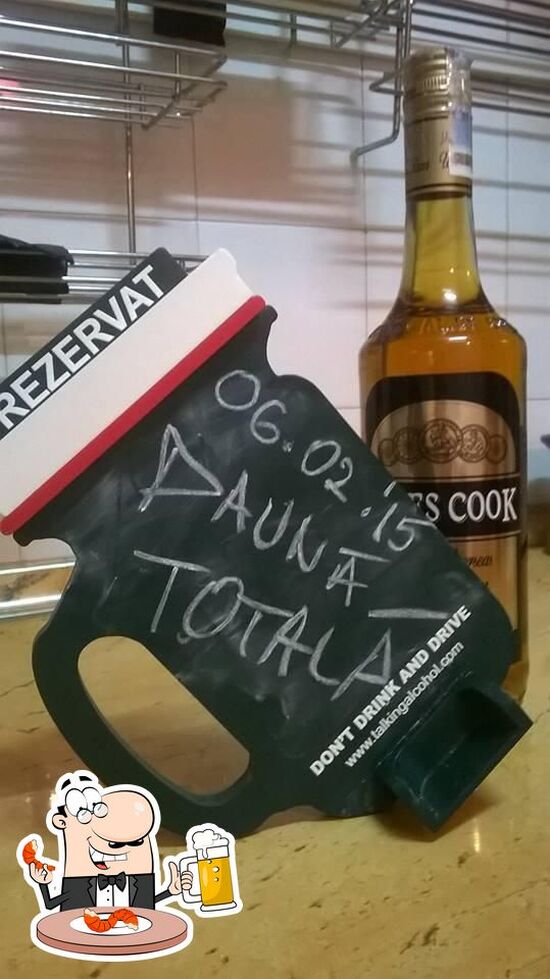 REZERVAT
06.02.'15
DAUNĂ
TOTALĂ
DON'T DRINK AND DRIVE
www.talkingalcohol.com
ES COOK